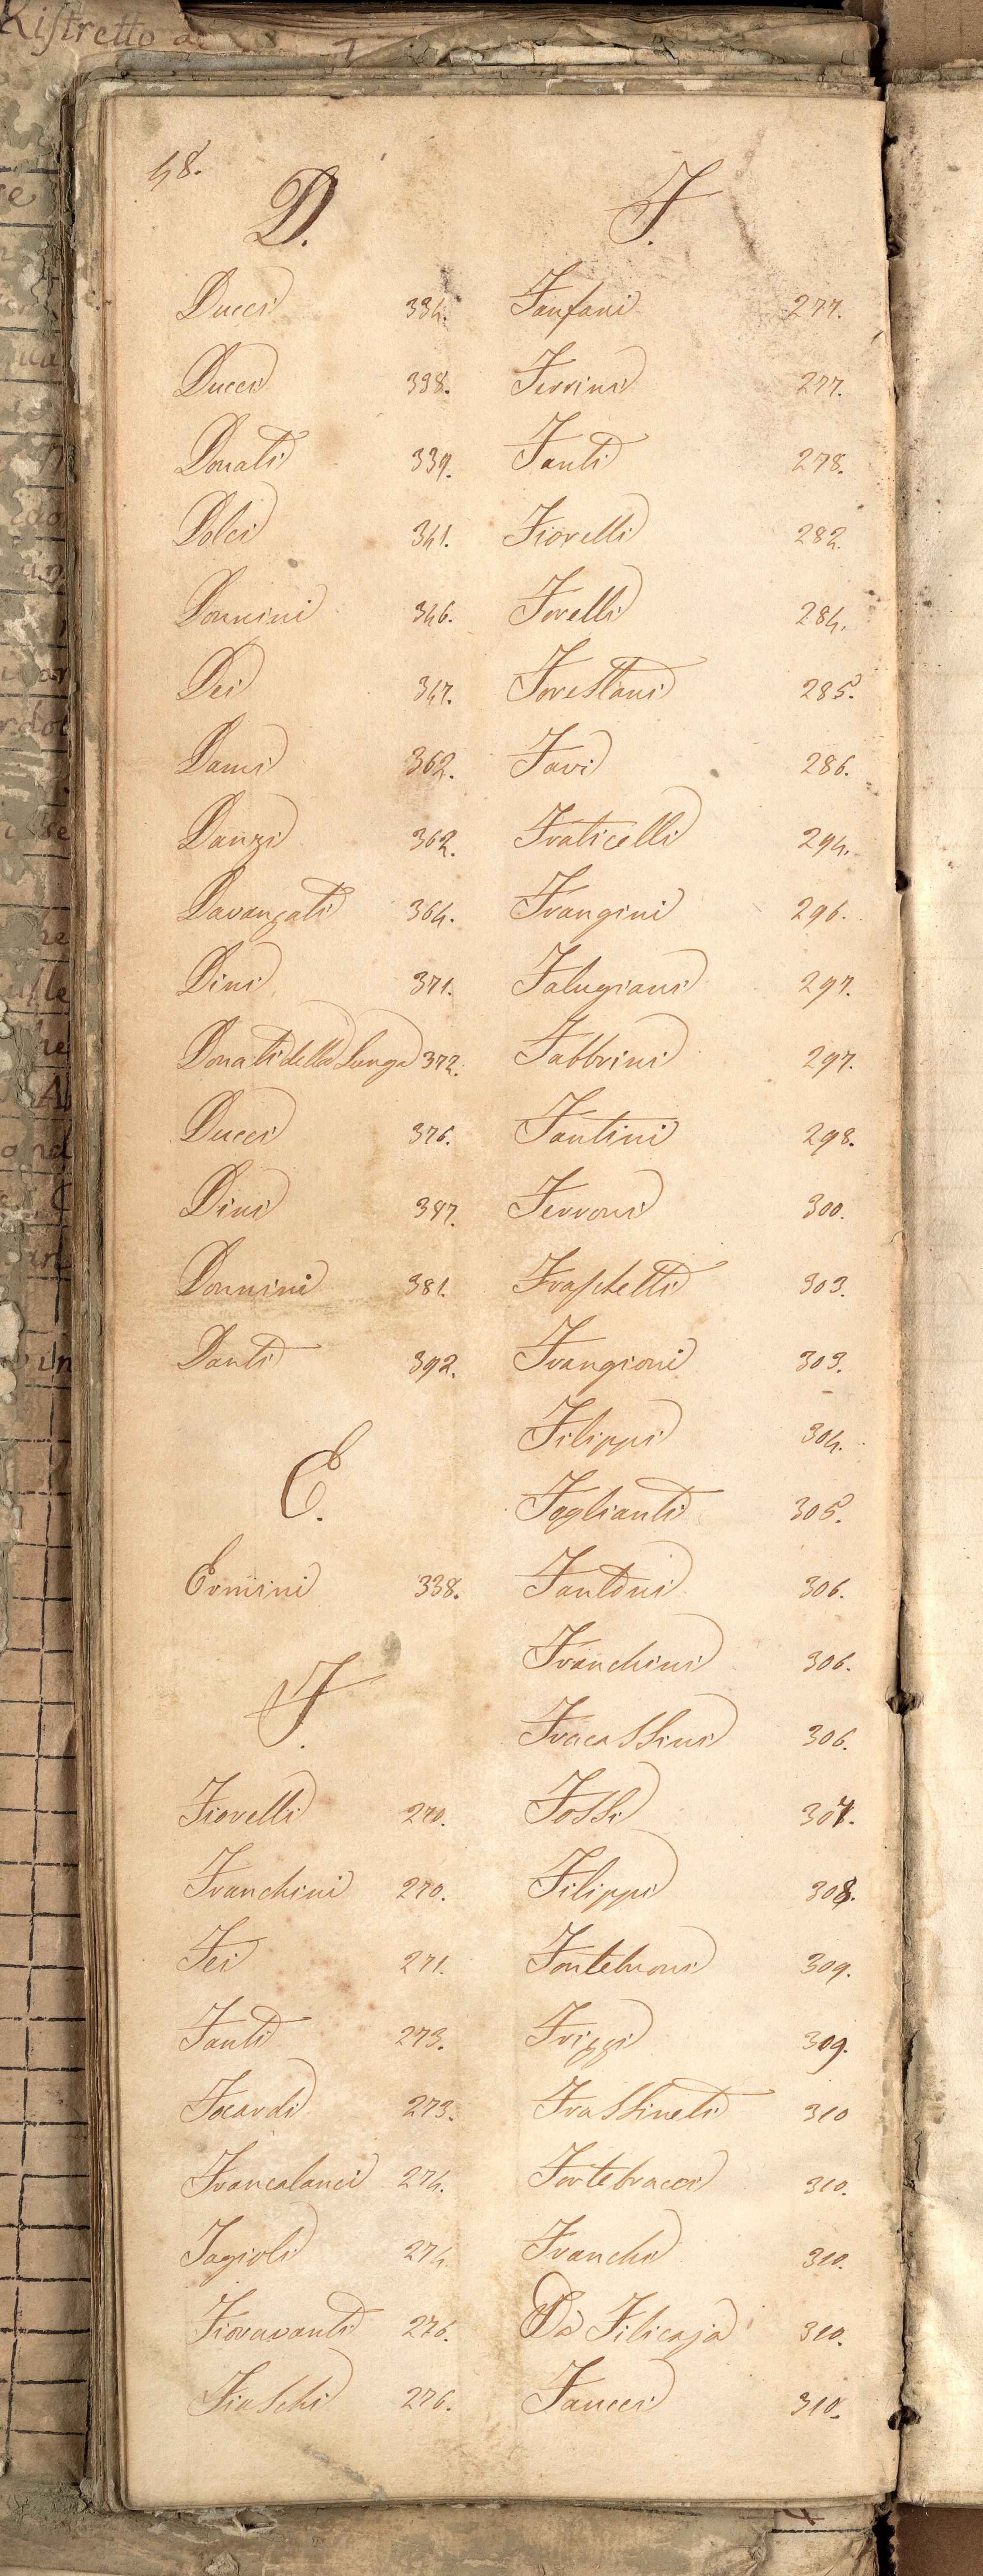 Ristretto d
48.
D.
Ducci 334.
Ducci 338.
Donati 339.
Dolci 341.
Donnini 346.
Dei 347.
Dami 362.
Danzi 362.
Davanzati 364.
Dini 371.
Donati della Lunga 372.
Ducci 376.
Dini 387.
Donnini 381.
Danti 392.
E.
Ermini 338.
F.
Fiorelli 270.
Franchini 270.
Fei 271.
Fanti 273.
Focardi 273.
Francalanci 274.
Fagioli 274.
Fioravanti 276.
Fiaschi 276.
F.
Fanfani 277.
Ferrini 277.
Fanti 278.
Fiorelli 282.
Forelli 284.
Forestani 285.
Favi 286.
Fraticelli 294.
Frangini 296.
Falugiani 297.
Fabbrini 297.
Fantini 298.
Ferroni 300.
Fraschetti 303.
Frangioni 303.
Filippi 304.
Foglianti 305.
Fantoni 306.
Franchini 306.
Fracassini 306.
Fossi 307.
Filippi 308.
Fontebuoni 309.
Frizzi 309.
Frassineti 310
Fortebracci 310.
Franchi 310.
Da Filicaja 310.
Fancci 310.